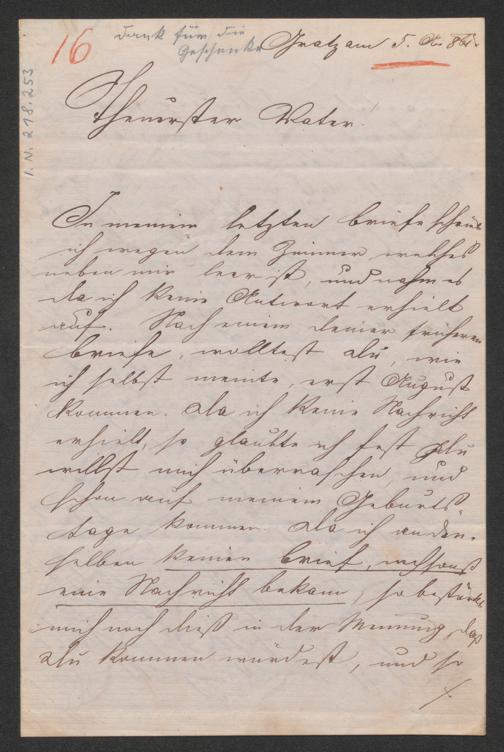 16
Dank für die
Geschenke
Gratz am 5. 86.
I.N. 218.253
Theuerster Vater!
In meinem letzten Briefe schrieb
ich wegen dem Zimmer welches
neben mir leer ist, und nahm es
da ich keine Antwort erhielt
auf. Nach einem Deiner früheren
Briefe, wolltest Du, wie
ich selbst meinte, erst August
kommen. Da ich keine Nachricht
erhielt, so glaubte ich fest Du
willst mich überraschen, und
schon auf meinem Geburts-
tage kommen. Da ich an dem-
selben keinen Brief, noch sonst
eine Nachricht bekam, so bestärkte
mich noch dieß in der Meinung, daß
Du kommen würdest, und so